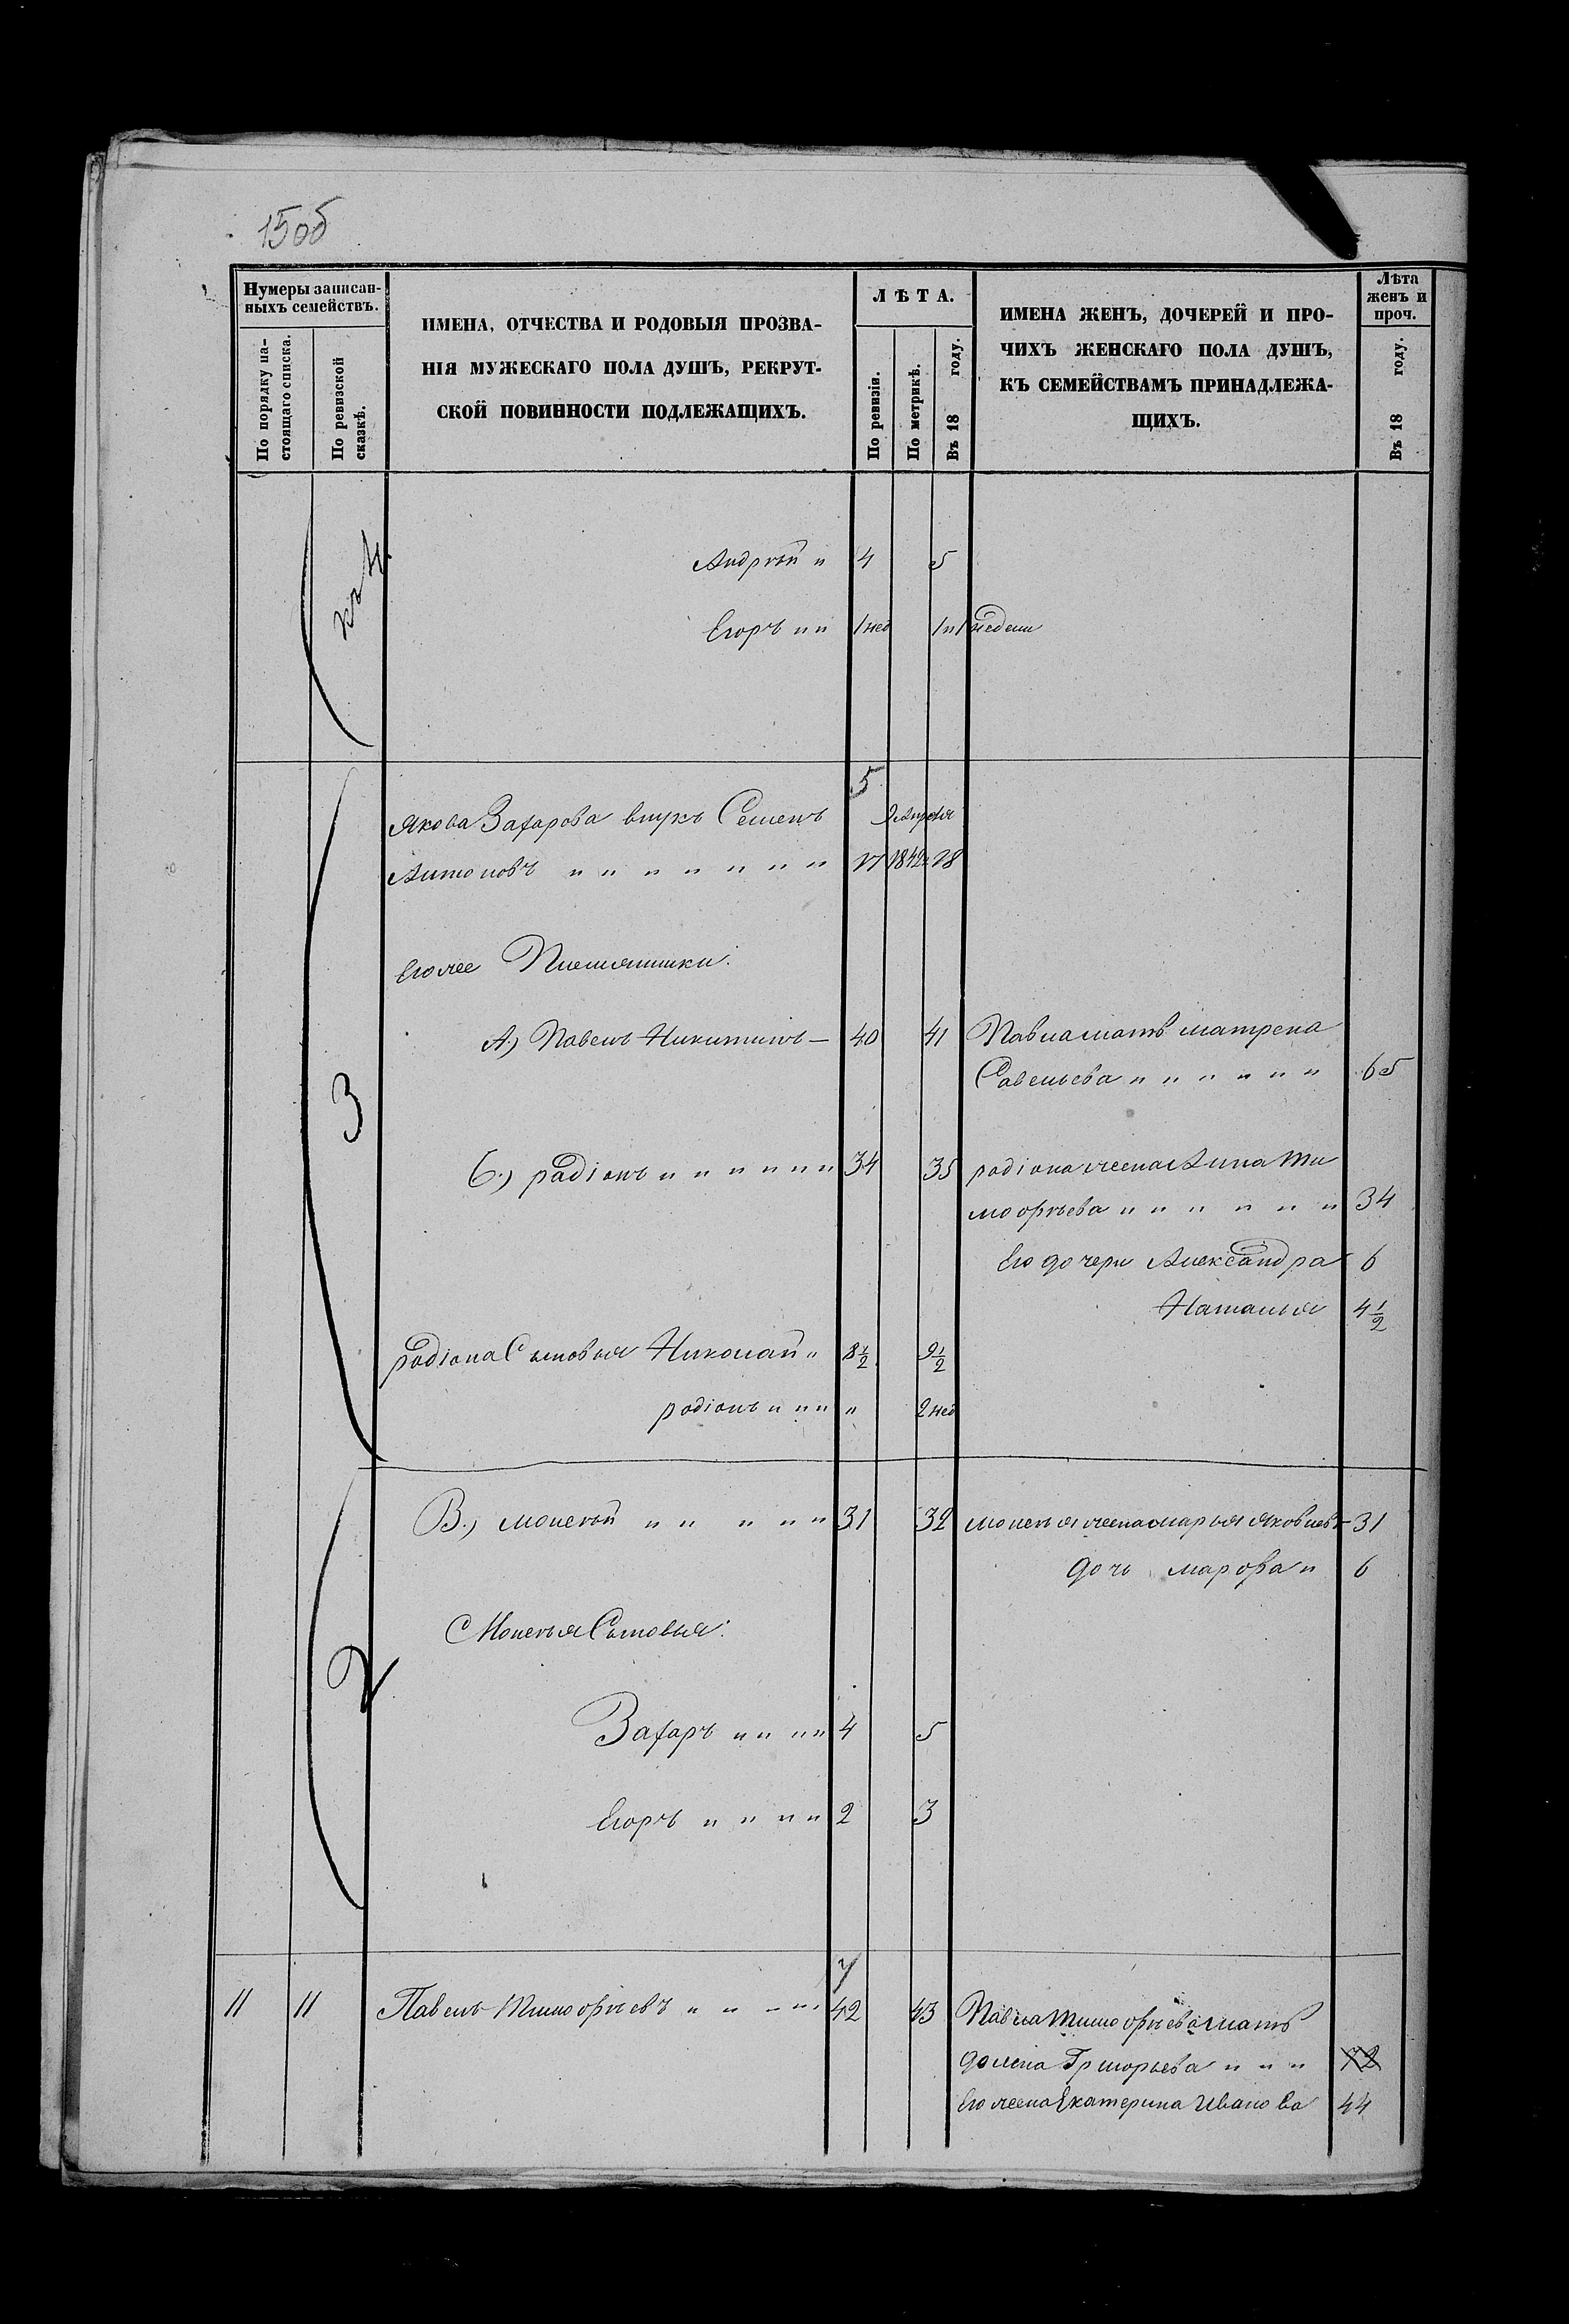 15об
Нумеры записан-
ныхъ семействъ.
По порядку на-
стоящаго списка.
По ревизской
сказкѣ.
ИМЕНА, ОТЧЕСТВА И РОДОВЫЯ ПРОЗВА-
НІЯ МУЖЕСКАГО ПОЛА ДУШЪ, РЕКРУТ-
СКОЙ ПОВИННОСТИ ПОДЛЕЖАЩИХЪ.
ЛѢТА.
По ревизіи.
По метрикѣ.
Въ 18 году.
ИМЕНА ЖЕНЪ, ДОЧЕРЕЙ И ПРО-
ЧИХЪ ЖЕНСКАГО ПОЛА ДУШЪ,
КЪ СЕМЕЙСТВАМЪ ПРИНАДЛЕЖА-
ЩИХЪ.
Лѣта
женъ и
проч.
Въ 18 году.
Андрѣй " 4 5
Егоръ " " 1 нед 1 и 1 недели
5
Якова Захарова внукъ Семенъ 9 Апреля
Антоновъ " " " " " " " 17 1842 18
Его же Племянники:
3
А.) Павелъ Никитинъ — 40 41 Павла мать матрена
Савельева " " " " " " 65
Б.) радіонъ " " " " " " " 34 35 радіона жена Анна Ти
моѳѣева " " " " " " 34
Его дочери Александра 6
Наталья 4 1/2
радіона Сыновья Николай " 8 1/2 9 1/2
радіонъ " " " " 2 нед
2
В.) мокей " " " " " 31 32 мокея жена марья яковлев 31
дочь марѳа " 6
Мокея Сыновья:
Захаръ " " " " 4 5
Егоръ " " " " 2 3
7
11 11 Павелъ Тимоѳѣевъ " " " " 42 43 Павла Тимоѳѣева мать
домна Григорьева " " " 72
Его жена Екатерина Иванова 44